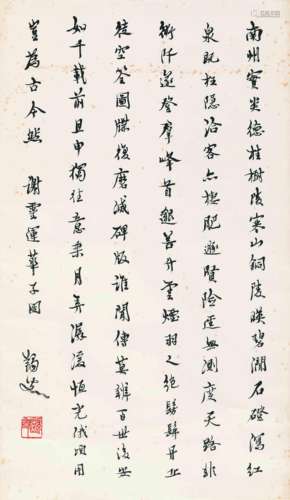 南州實炎德桂樹陵寒山銅陵映碧澗石磴瀉紅
泉既枉隱淪客亦棲肥遯賢險逕無測度天路非
術阡遂登羣峰首邈若升雲煙羽人絕髣髴丹丘
徒空筌圖牒復磨滅碑版誰聞傳莫辨百世後安
知千載前且申獨往意乘月弄潺湲恒充俄頃用
豈為古今然 謝靈運華子岡